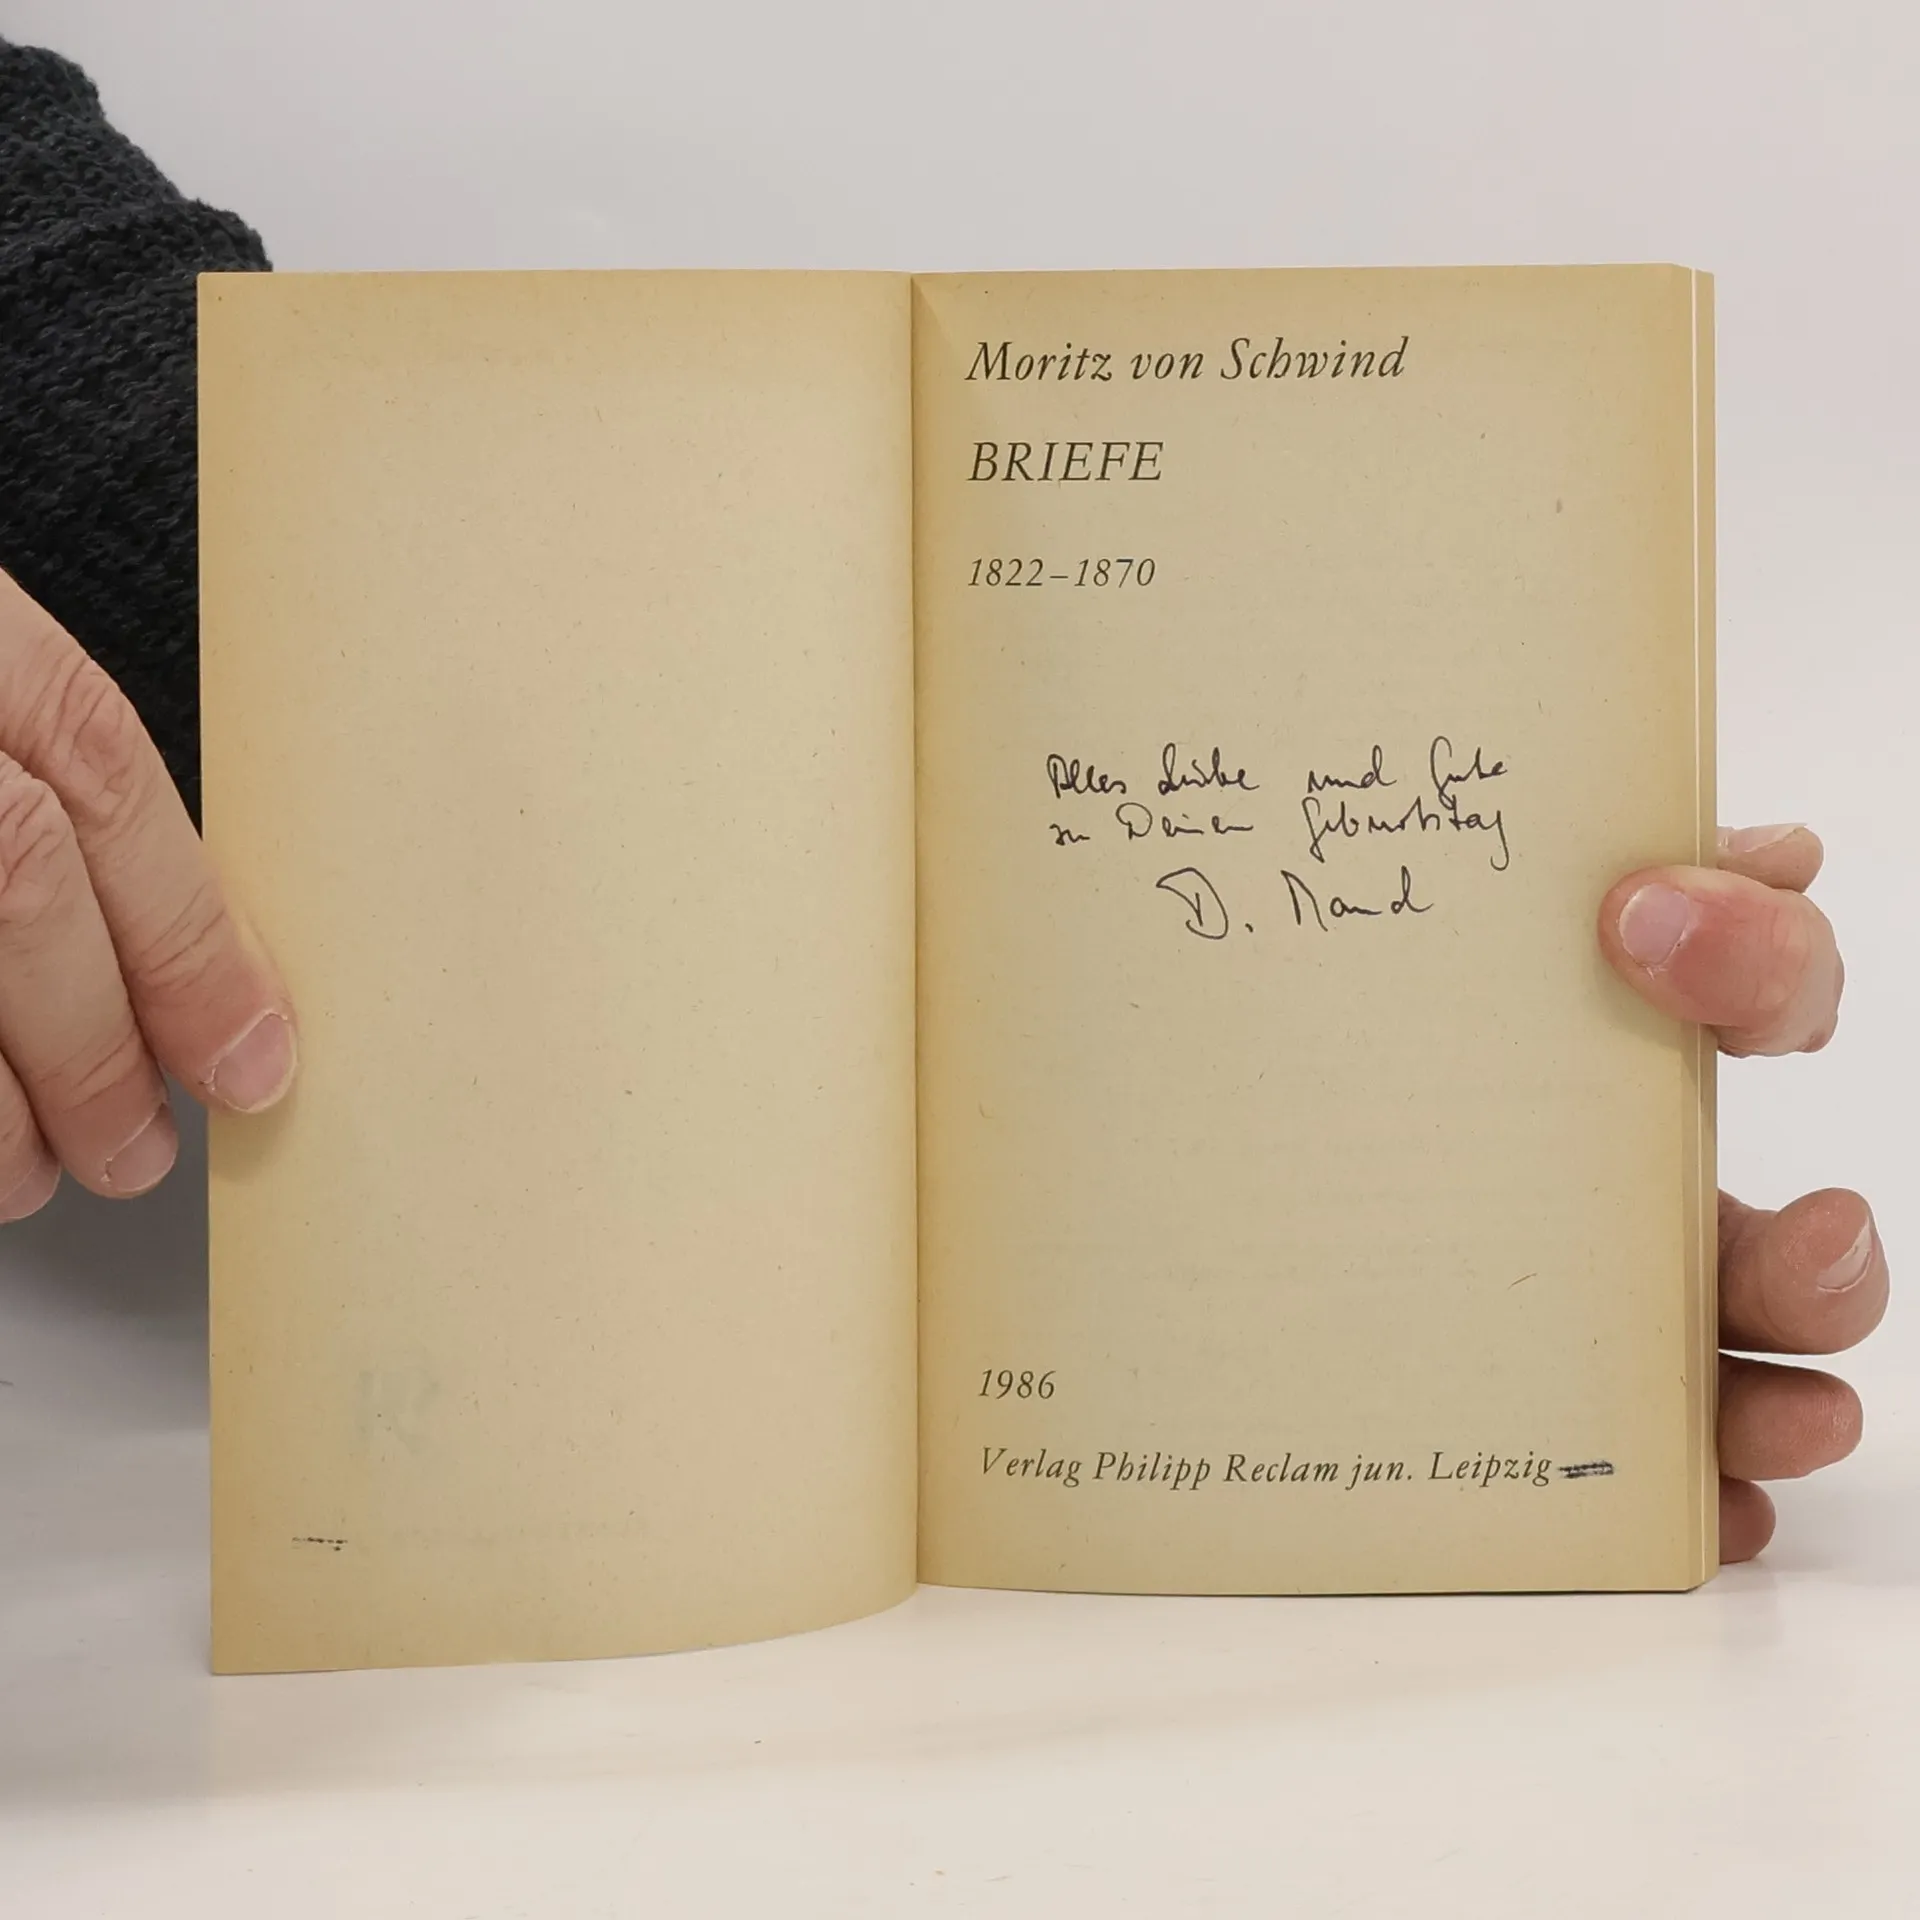 Moritz von Schwind
BRIEFE
1822–1870
Alles Liebe und Gute
zu Deinem Geburtstag
D.
1986
Verlag Philipp Reclam jun. Leipzig